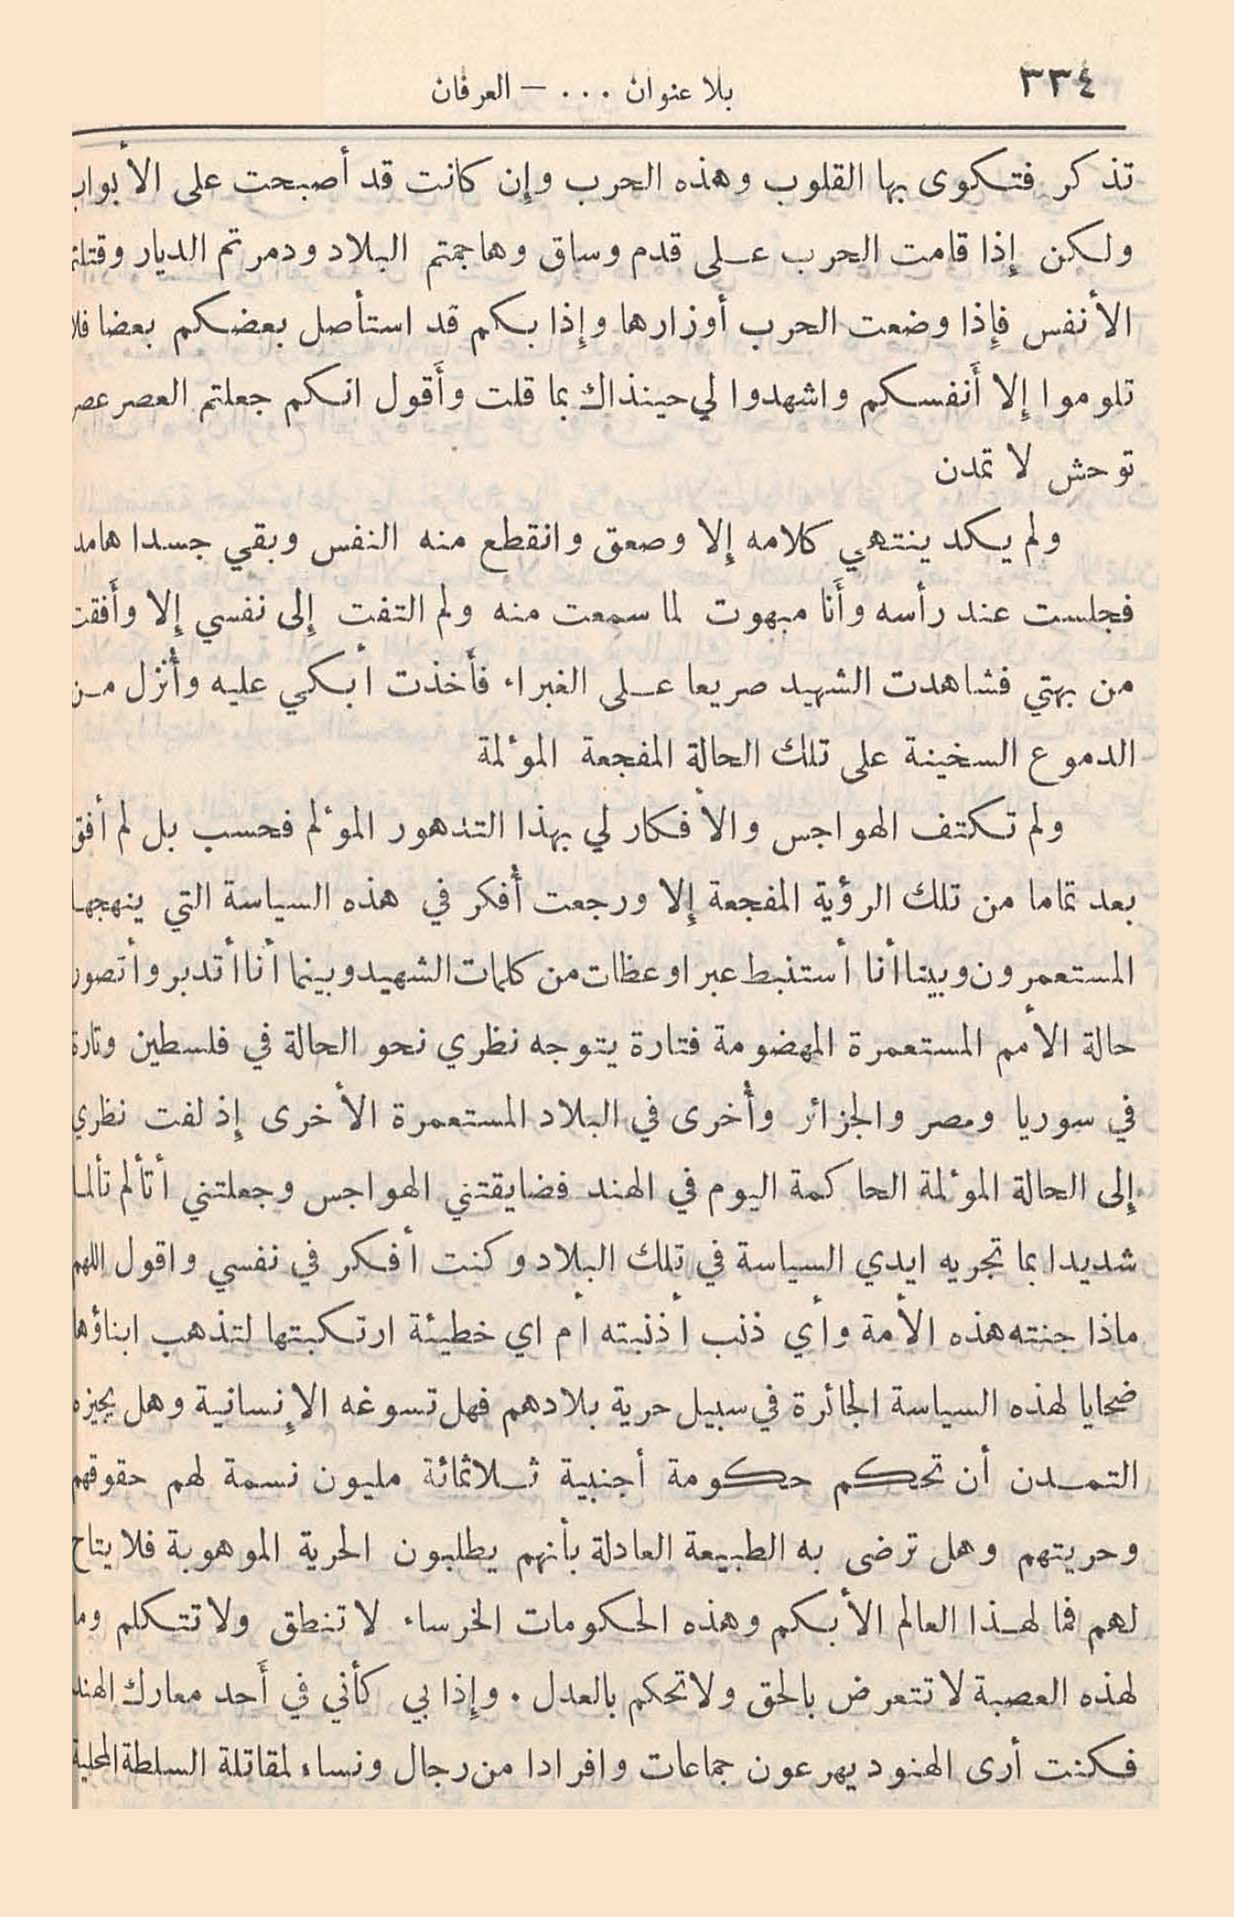 ٣٣٤
بلا عنوان ... — العرفان
تذكر فتكوى بها القلوب وهذه الحرب وإن كانت قد أصبحت على الأبواب
ولكن إذا قامت الحرب على قدم وساق وهاجمتم البلاد ودمرتم الديار وقتلتم
الأنفس فإذا وضعت الحرب أوزارها وإذا بكم قد استأصل بعضكم بعضا فلا
تلوموا إلا أنفسكم واشهدوا لي حينذاك بما قلت وأقول انكم جعلتم العصر عصر
توحش لا تمدن
ولم يكد ينتهي كلامه إلا وصعق وانقطع منه النفس وبقي جسدا هامدا
فجلست عند رأسه وأنا مبهوت لما سمعت منه ولم التفت إلى نفسي إلا وأفقت
من بهتي فشاهدت الشهيد صريعا على الغبراء فأخذت أبكي عليه وأُنزل من
الدموع السخينة على تلك الحالة المفجعة المؤلمة
ولم تكتف الهواجس والأفكار لي بهذا التدهور المؤلم فحسب بل لم أفق
بعد تماما من تلك الرؤية المفجعة إلا ورجعت أُفكر في هذه السياسة التي ينهجها
المستعمرون وبينا أنا أستنبط عبرا وعظات من كلمات الشهيد وبينما أنا أتدبر وأتصور
حالة الأمم المستعمرة المهضومة فتارة يتوجه نظري نحو الحالة في فلسطين وتارة
في سوريا ومصر والجزائر وأُخرى في البلاد المستعمرة الأخرى إذ لفت نظري
إلى الحالة المؤلمة الحاكمة اليوم في الهند فضايقتني الهواجس وجعلتني أتألم تألما
شديدا بما تجريه ايدي السياسة في تلك البلاد وكنت أفكر في نفسي واقول اللهم
ماذا جنته هذه الأمة وأي ذنب أذنبته أم اي خطيئة ارتكبتها لتذهب ابناؤها
ضحايا لهذه السياسة الجائرة في سبيل حرية بلادهم فهل تسوغه الإنسانية وهل يجيزه
التمدن أن تحكم حكومة أجنبية ثلاثمائة مليون نسمة لهم حقوقهم
وحريتهم وهل ترضى به الطبيعة العادلة بأنهم يطلبون الحرية الموهوبة فلا يتاح
لهم فما لهذا العالم الأبكم وهذه الحكومات الخرساء لا تنطق ولا تتكلم وما
لهذه العصبة لا تتعرض بالحق ولا تحكم بالعدل . وإذا بي كأني في أَحد معارك الهند
فكنت أرى الهنود يهرعون جماعات وافرادا من رجال ونساء لمقاتلة السلطة المحلية